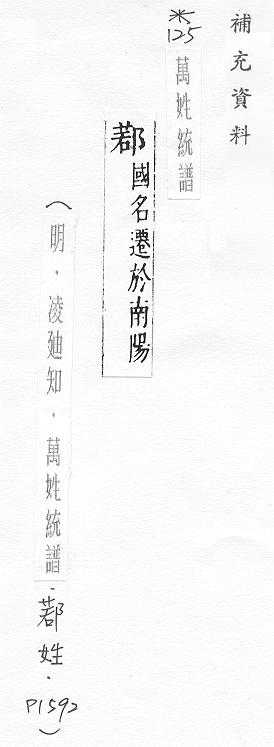 補充資料
※125
萬姓統譜
鄀國名遷於南陽
(明．凌迪知．萬姓統譜．鄀姓．P1592)